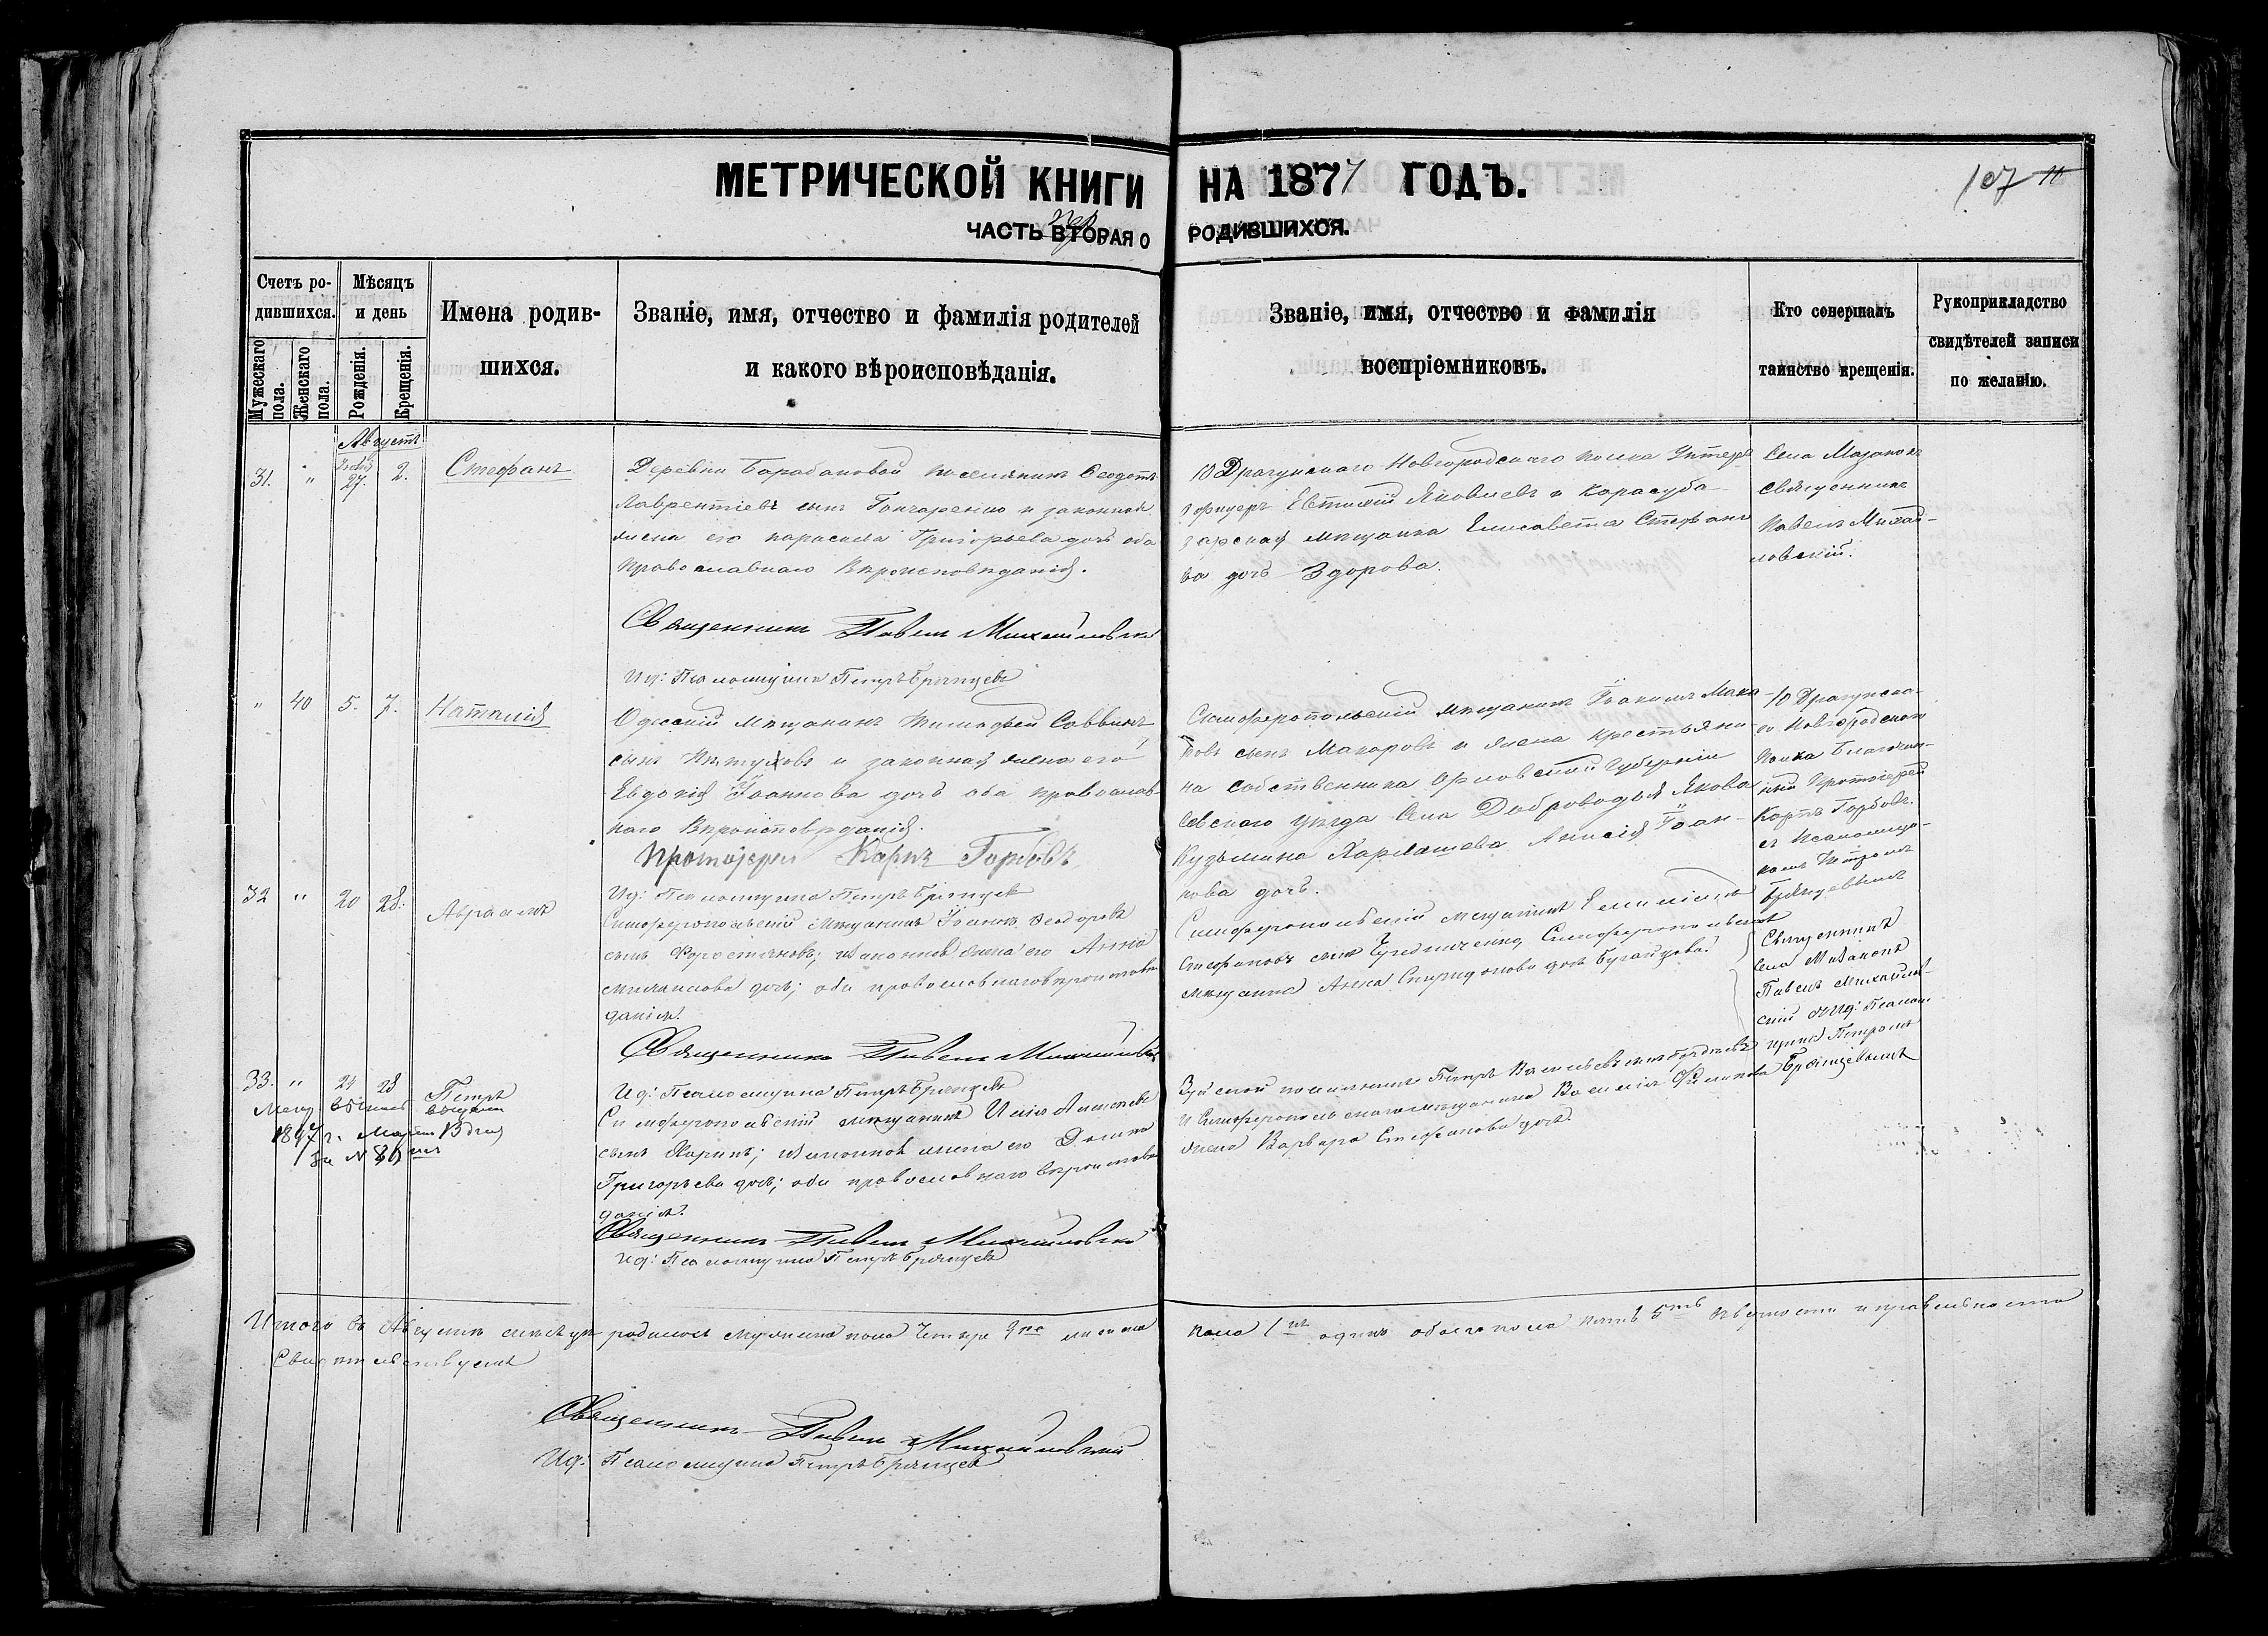 МЕТРИЧЕСКОЙ КНИГИ НА 1877 ГОДЪ.
107
ЧАСТЬ ВТОРАЯ О РОДИВШИХСЯ.
Счетъ родившихся.
Мужескаго пола.
Женскаго пола.
Мѣсяцъ и день
Рожденія.
Крещенія.
Имена родившихся.
Званіе, имя, отчество и фамилія родителей
и какого вѣроисповѣданія.
Званіе, имя, отчество и фамилія
воспріемниковъ.
Кто совершалъ
таинство крещенія.
Рукоприкладство
свидѣтелей записи
по желанію.
Августъ
31. " 27. 2. Стефанъ
Деревни Барабановой поселянинъ Ѳеодотъ
Лаврентіевъ сынъ Гончаренко и законная
жена его Параскева Григорьева дочь оба
Православнаго Вѣроисповѣданія.
Священникъ Павелъ Михайловскій
Ид: Псаломщика Петръ Брянцевъ
10 Драгунскаго Новгородскаго полка Унтеръ
офицеръ Евтихій Яковлевъ и Карасуба-
зарская мѣщанка Елисавета Стефано
ва дочь Здорова.
Села Мазанокъ
Священникъ
Павелъ Михай-
ловскій.
" 40 5. 7. Наталія
Одесскій Мѣщанинъ Тимофей Саввинъ
сынъ Пѣтуховъ и законная жена его
Евдокія Іоаннова дочь оба православ-
наго Вѣроисповѣданія.
Протоіерей Карпъ Горбовъ
Ид: Псаломщика Петръ Брянцевъ
Симферопольскій мѣщанинъ Іоакимъ Мака
ровъ сынъ Макаровъ и жена крестьяни-
на собственника Орловской Губерніи
Севскаго уѣзда Села Доброводья Якова
Кузьмина Харлашева Анисія Іоан-
нова дочь.
10 Драгунска-
го Новгородскаго
Полка Благочин-
ный Протоіерей
Карпъ Горбовъ
съ Псаломщи-
комъ Петромъ
Брянцевымъ
32 " 20 28. Авраамъ
Симферопольскій Мѣщанинъ Іоаннъ Ѳеодоровъ
сынъ Форостяновъ; и законная жена его Анна
Михаилова дочь; оба православнаго вѣроисповѣ
данія.
Священникъ Павелъ Михайловскій
Ид: Псаломщика Петръ Брянцевъ
Симферопольскій мѣщанинъ
Стефановъ сынъ Симферопольская
мѣщанка Анна Спиридонова дочь
Священникъ
села Мазанокъ
Павелъ Михайлов-
скій и Ид: Псалом-
щика Петромъ
Брянцевымъ
33. " 24 28 Петръ
1897 г. Марта
за №
Симферопольскій мѣщанинъ Илія
сынъ Каринъ; и законная жена его Домна
Григорьева дочь; оба православнаго вѣроисповѣ
данія.
Священникъ Павелъ Михайловскій
Ид: Псаломщика Петръ Брянцевъ
Зуйской поселянинъ Петръ Васильевъ сынъ Гордѣевъ
и Симферопольскаго мѣщанина Василія Филипова
жена Варвара Стефанова дочь.
Итого въ Августѣ мѣсяцѣ родилось мужеска пола Четыре женска пола 1нъ одинъ обоего пола пять 5ть вѣрности и правильности
Свидѣтельствуемъ
Священникъ Павелъ Михайловскій
Ид: Псаломщика Петръ Брянцевъ